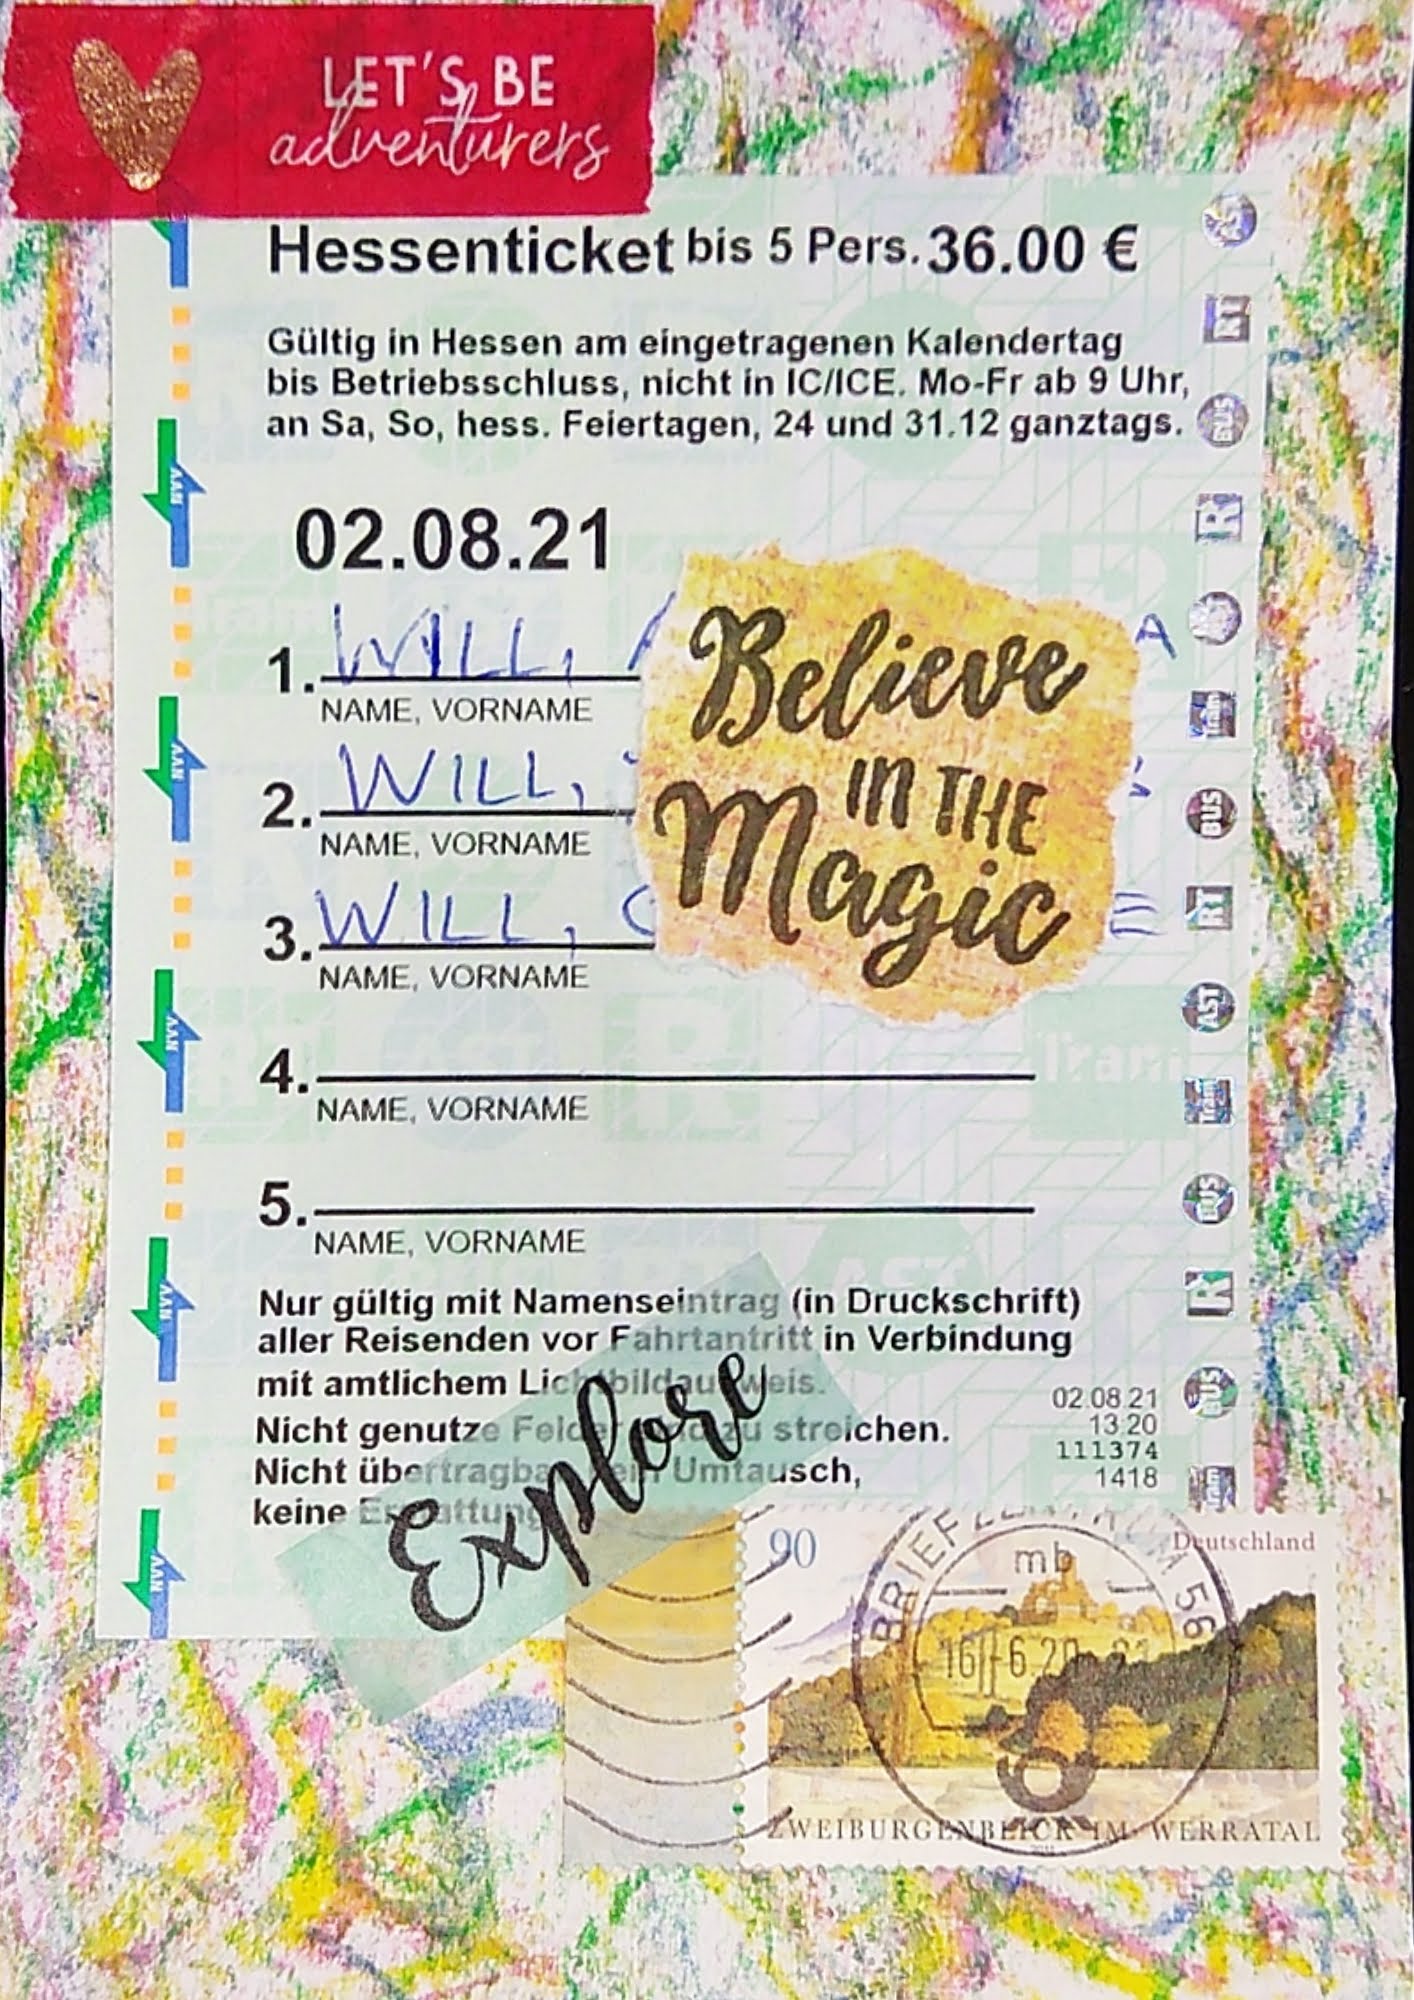 LET'S BE
adventurers
Hessenticket bis 5 Pers. 36.00 €
Gültig in Hessen am eingetragenen Kalendertag
bis Betriebsschluss, nicht in IC/ICE. Mo-Fr ab 9 Uhr,
an Sa, So, hess. Feiertagen, 24 und 31.12 ganztags.
02.08.21
1. WILL, A
NAME, VORNAME
2. WILL,
NAME, VORNAME
3. WILL, E
NAME, VORNAME
Believe
IN THE
Magic
4.
NAME, VORNAME
5.
NAME, VORNAME
Nur gültig mit Namenseintrag (in Druckschrift)
aller Reisenden vor Fahrtantritt in Verbindung
mit amtlichem Lichtbildausweis.
Nicht genutze Felder sind zu streichen.
Nicht übertragbar, kein Umtausch,
keine Erstattung
Explore
02.08.21
13.20
111374
1418
NVV
NVV
NVV
NVV
NVV
RT
BUS
R
Tram
BUS
RT
AST
Tram
BUS
R
BUS
Tram
90
Deutschland
BRIEFZENTRUM 56
mb
ZWEIBURGENBLICK IM WERRATAL